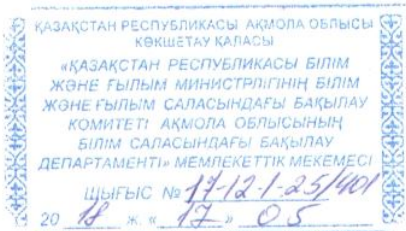 ҚАЗАҚСТАН РЕСПУБЛИКАСЫ АҚМОЛА ОБЛЫСЫ
КӨКШЕТАУ ҚАЛАСЫ
«ҚАЗАҚСТАН РЕСПУБЛИКАСЫ БІЛІМ
ЖӘНЕ ҒЫЛЫМ МИНИСТРЛІГІНІҢ БІЛІМ
ЖӘНЕ ҒЫЛЫМ САЛАСЫНДАҒЫ БАҚЫЛАУ
КОМИТЕТІ АҚМОЛА ОБЛЫСЫНЫҢ
БІЛІМ САЛАСЫНДАҒЫ БАҚЫЛАУ
ДЕПАРТАМЕНТІ» МЕМЛЕКЕТТІК МЕКЕМЕСІ
ШЫҒЫС № 17-12-1-25/401
20 18 ж. « 17 » 05